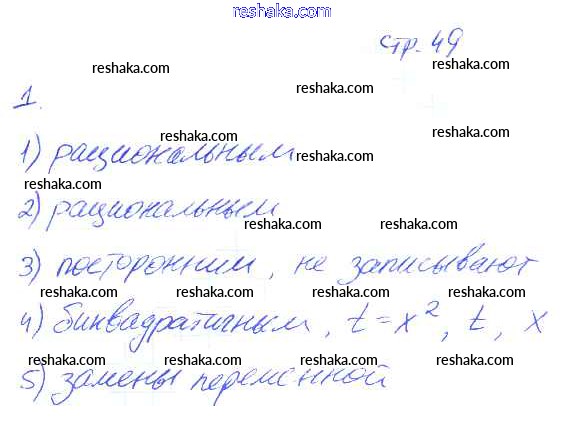 reshaka.com
стр. 49
reshaka.com
reshaka.com
reshaka.com
reshaka.com
1.
reshaka.com
reshaka.com
1) рациональным
reshaka.com
reshaka.com
2) рациональным
reshaka.com
reshaka.com
3) посторонним, не записывают
reshaka.com reshaka.com reshaka.com reshaka.com
4) биквадратичным, t=x², t, x
reshaka.com reshaka.com reshaka.com reshaka.com
5) замены переменной